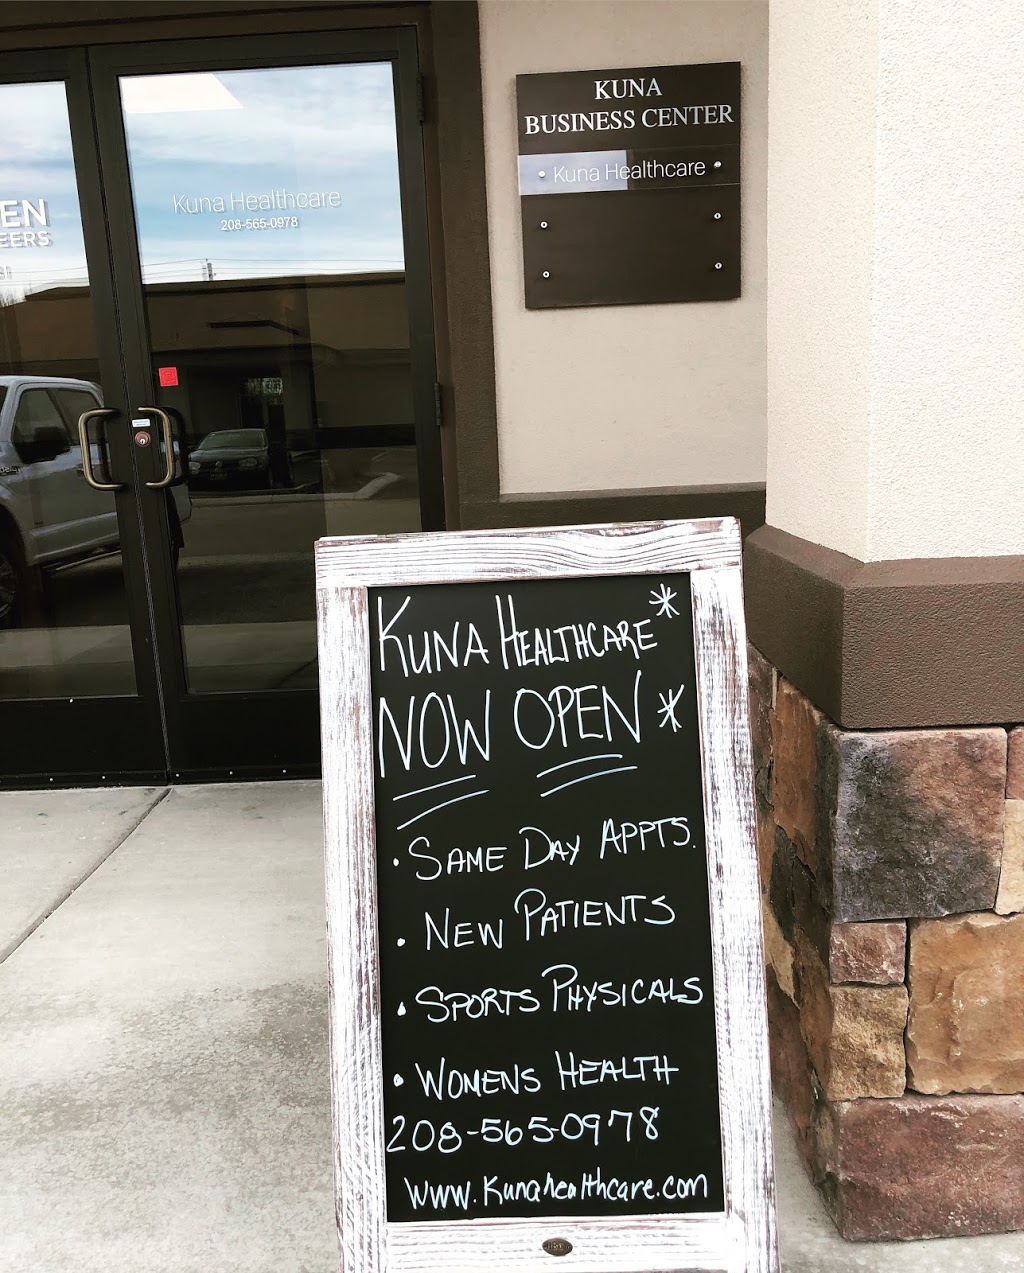 KUNA
BUSINESS CENTER
Kuna Healthcare
Kuna Healthcare
208-565-0978
EN
EERS
KUNA HEALTHCARE
NOW OPEN
• SAME DAY APPTS.
• NEW PATIENTS
• SPORTS PHYSICALS
• WOMENS HEALTH
208-565-0978
www.Kunahealthcare.com